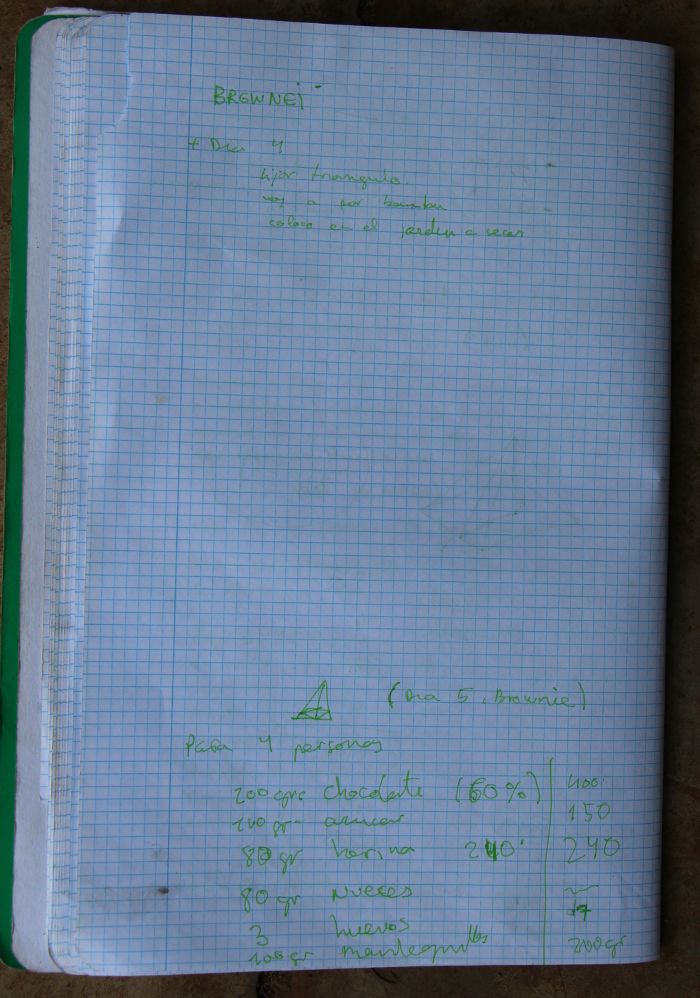 BROWNEÏ
+ Dia 4
lijar triangulo.
voy a por bambu
coloco en el jardin a secar
(Dia 5. Brownie)
Para 4 personas
200 grs chocolate (60%) 400
100 gr azucar 150
80 gr harina 240 240
80 gr nueces ~
3 huevos 7
100 gr mantequilla 200gr